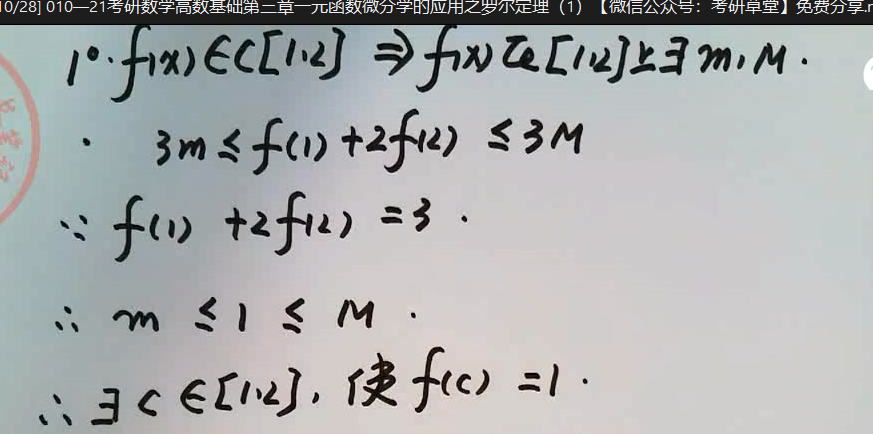 10/28] 010—21考研数学高数基础第三章一元函数微分学的应用之罗尔定理（1）【微信公众号：考研草堂】免费分享.
1°. f(x)∈C[1,2] ⇒ f(x)在[1,2]上∃m,M.
· 3m≤f(1)+2f(2)≤3M
∵ f(1)+2f(2)=3.
∴ m≤1≤M.
∴ ∃c∈[1,2], 使f(c)=1.